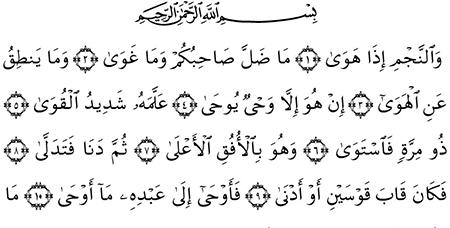 بِسْمِ اللَّهِ الرَّحْمَٰنِ الرَّحِيمِ
وَالنَّجْمِ إِذَا هَوَىٰ ﴿١﴾ مَا ضَلَّ صَاحِبُكُمْ وَمَا غَوَىٰ ﴿٢﴾ وَمَا يَنطِقُ
عَنِ الْهَوَىٰ ﴿٣﴾ إِنْ هُوَ إِلَّا وَحْيٌ يُوحَىٰ ﴿٤﴾ عَلَّمَهُ شَدِيدُ الْقُوَىٰ ﴿٥﴾
ذُو مِرَّةٍ فَاسْتَوَىٰ ﴿٦﴾ وَهُوَ بِالْأُفُقِ الْأَعْلَىٰ ﴿٧﴾ ثُمَّ دَنَا فَتَدَلَّىٰ ﴿٨﴾
فَكَانَ قَابَ قَوْسَيْنِ أَوْ أَدْنَىٰ ﴿٩﴾ فَأَوْحَىٰ إِلَىٰ عَبْدِهِ مَا أَوْحَىٰ ﴿١٠﴾ مَا